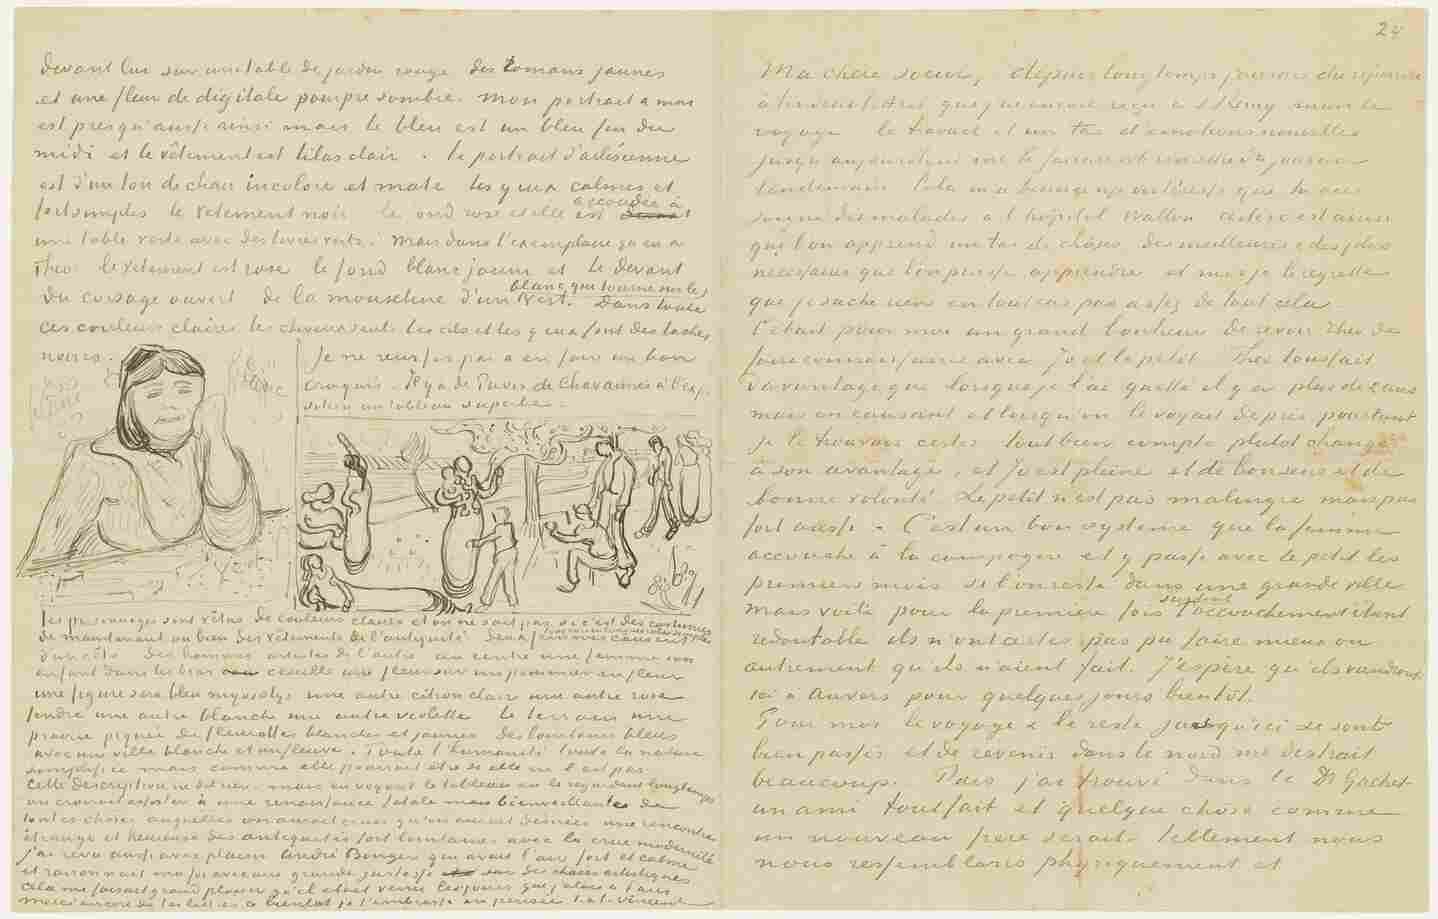 devant lui sur une table de jardin rouge des romans jaunes
et une fleur de digitale pourpre sombre. Mon portrait a moi
est presqu'aussi ainsi mais le bleu est un bleu fin du
midi et le vêtement est lilas clair. Le portrait d'arlésienne
est d'un ton de chair incolore et mate les yeux calmes et
fort simples le vetement noir le fond rose et elle est accoudée à
une table verte avec des livres verts. Mais dans l'exemplaire qu'en a
Theo le vetement est rose le fond blanc jaune et le devant
du corsage ouvert de la mousseline d'un blanc qui tourne sur le vert. Dans toutes
ces couleurs claires les cheveux seuls les cils et les yeux font des taches
noires.
Je ne reussis pas a en faire un bon
croquis. Il y a de Puvis de Chavannes à l'exp-
osition un tableau superbe.
Les personnages sont vêtus de couleurs claires et on ne sait pas si c'est des costumes
de maintenant ou bien des vêtements de l'antiquité deux femmes causent
d'un côté des hommes artistes de l'autre au centre une femme son
enfant dans les bras cueille une fleur sur un pommier en fleur
une figure sera bleu myosotys une autre citron clair une autre rose
tendre une autre blanche une autre violette le terrain une
prairie piquée de fleurettes blanches et jaunes des lointains bleus
avec une ville blanche et un fleuve. Toute l'humanité toute la nature
simplifiée mais comme elle pourrait être si elle ne l'est pas.
Cette description ne dit rien - mais en voyant le tableau en le regardant longtemps
on croirait assister à une renaissance fatale mais bienveillante de
toutes choses auquelles on aurait cru qu'on aurait désirées une rencontre
étrange et heureuse des antiquités fort lointaines avec la crue modernité
j'ai revu aussi avec plaisir André Bonger qui avait l'air fort et calme
et raisonnait ma foi avec une grande justesse sur des choses artistiques
cela me faisait grand plaisir qu'il etait venu les jours que j'etais à Paris
merci encore de tes lettres a bientôt je t'embrasse en pensée t. à t. Vincent
24
Ma chère soeur, depuis longtemps j'aurais du répondre
à tes deux lettres que j'ai encore reçu à St Remy mais le
voyage le travail et un tas d'emotions nouvelles
jusqu'aujourdhui me le faisaient remettre de jour au
lendemain. Cela m'a beaucoup intéressé que tu aies
soigné des malades a l'hopital Wallon certes c'est ainsi
qu'l'on apprend un tas de choses des meilleures & des plus
necessaires que l'on puisse apprendre et moi je le regrette
que je sache rien en tout cas pas assez de tout cela
C'etait pour moi un grand bonheur de revoir Theo de
faire connaissance avec Jo et le petit. Theo toussait
d'avantage que lorsque je l'ai quitté il y a plus de 2 ans
mais en causant et lorsqu'on le voyait de près pourtant
je le trouvais certes tout bien compté plutot changé
à son avantage, et Jo est pleine et de bon sens et de
bonne volonté. Le petit n'est pas malingre mais pas
fort aussi. C'est un bon système que la femme
accouche à la campagne et y passe avec le petit les
premiers mois si l'on reste dans une grande ville
mais voilà pour la première fois surtout l'accouchement étant
redoutable ils n'ont certes pas pu faire mieux ou
autrement qu'ils n'aient fait. J'espère qu'ils viendront
ici à Auvers pour quelques jours bientôt.
Pour moi le voyage & le reste jusqu'ici se sont
bien passés et de revenir dans le nord me distrait
beaucoup. Puis j'ai trouvé dans le Dr Gachet
un ami tout fait et quelque chose comme
un nouveau frère serait - tellement nous
nous ressemblons physiquement et